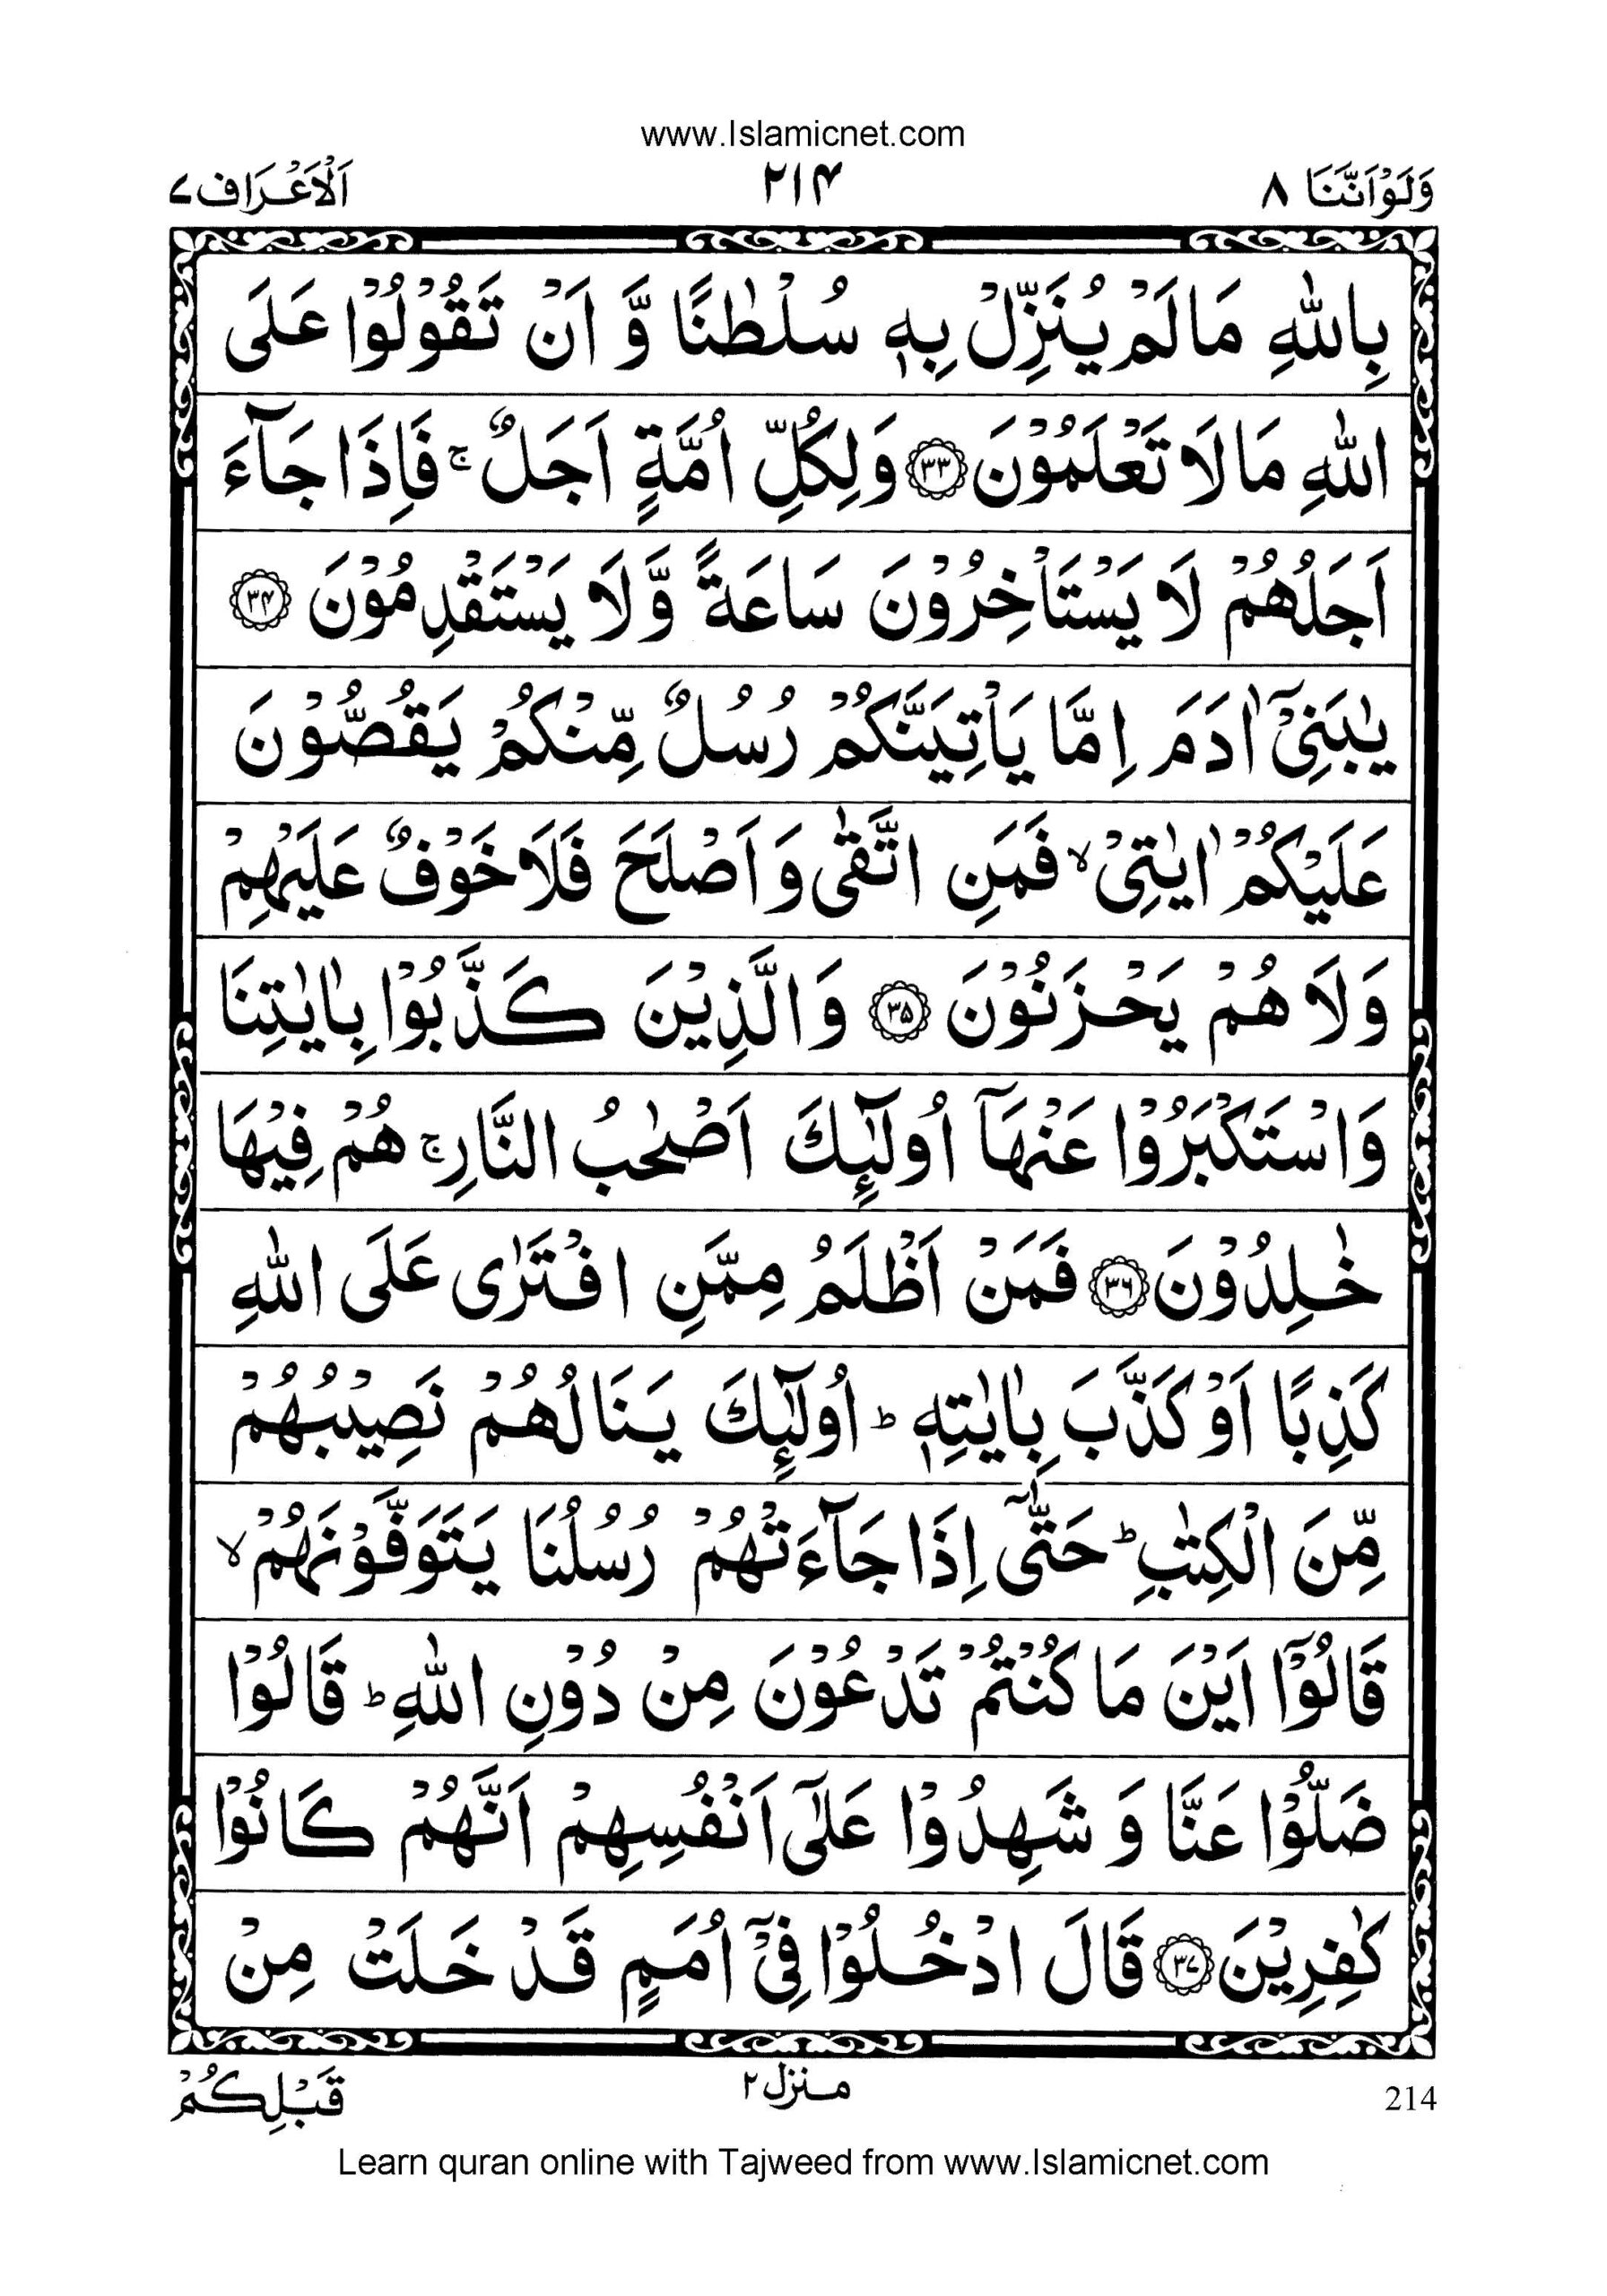 www.Islamicnet.com
وَلَوْاَنَّنَا ٨ ٢١۴ اَلْاَعْرَاف ٧
بِاللّٰهِ مَا لَمْ يُنَزِّلْ بِهٖ سُلْطٰنًا وَّ اَنْ تَقُوْلُوْا عَلَى
اللّٰهِ مَا لَا تَعْلَمُوْنَ ﴿٣٣﴾ وَلِكُلِّ اُمَّةٍ اَجَلٌ ۚ فَاِذَا جَآءَ
اَجَلُهُمْ لَا يَسْتَاْخِرُوْنَ سَاعَةً وَّلَا يَسْتَقْدِمُوْنَ ﴿٣۴﴾
يٰبَنِيْٓ اٰدَمَ اِمَّا يَاْتِيَنَّكُمْ رُسُلٌ مِّنْكُمْ يَقُصُّوْنَ
عَلَيْكُمْ اٰيٰتِيْ ۙ فَمَنِ اتَّقٰى وَاَصْلَحَ فَلَا خَوْفٌ عَلَيْهِمْ
وَلَا هُمْ يَحْزَنُوْنَ ﴿٣۵﴾ وَالَّذِيْنَ كَذَّبُوْا بِاٰيٰتِنَا
وَاسْتَكْبَرُوْا عَنْهَآ اُولٰٓئِكَ اَصْحٰبُ النَّارِ ۚ هُمْ فِيْهَا
خٰلِدُوْنَ ﴿٣۶﴾ فَمَنْ اَظْلَمُ مِمَّنِ افْتَرٰى عَلَى اللّٰهِ
كَذِبًا اَوْ كَذَّبَ بِاٰيٰتِهٖ ؕ اُولٰٓئِكَ يَنَالُهُمْ نَصِيْبُهُمْ
مِّنَ الْكِتٰبِ ؕ حَتّٰٓى اِذَا جَآءَتْهُمْ رُسُلُنَا يَتَوَفَّوْنَهُمْ ۙ
قَالُوْٓا اَيْنَ مَا كُنْتُمْ تَدْعُوْنَ مِنْ دُوْنِ اللّٰهِ ؕ قَالُوْا
ضَلُّوْا عَنَّا وَ شَهِدُوْا عَلٰٓى اَنْفُسِهِمْ اَنَّهُمْ كَانُوْا
كٰفِرِيْنَ ﴿٣٧﴾ قَالَ ادْخُلُوْا فِيْٓ اُمَمٍ قَدْ خَلَتْ مِنْ
قَبْلِكُمْ منزل ٢ 214
Learn quran online with Tajweed from www.Islamicnet.com